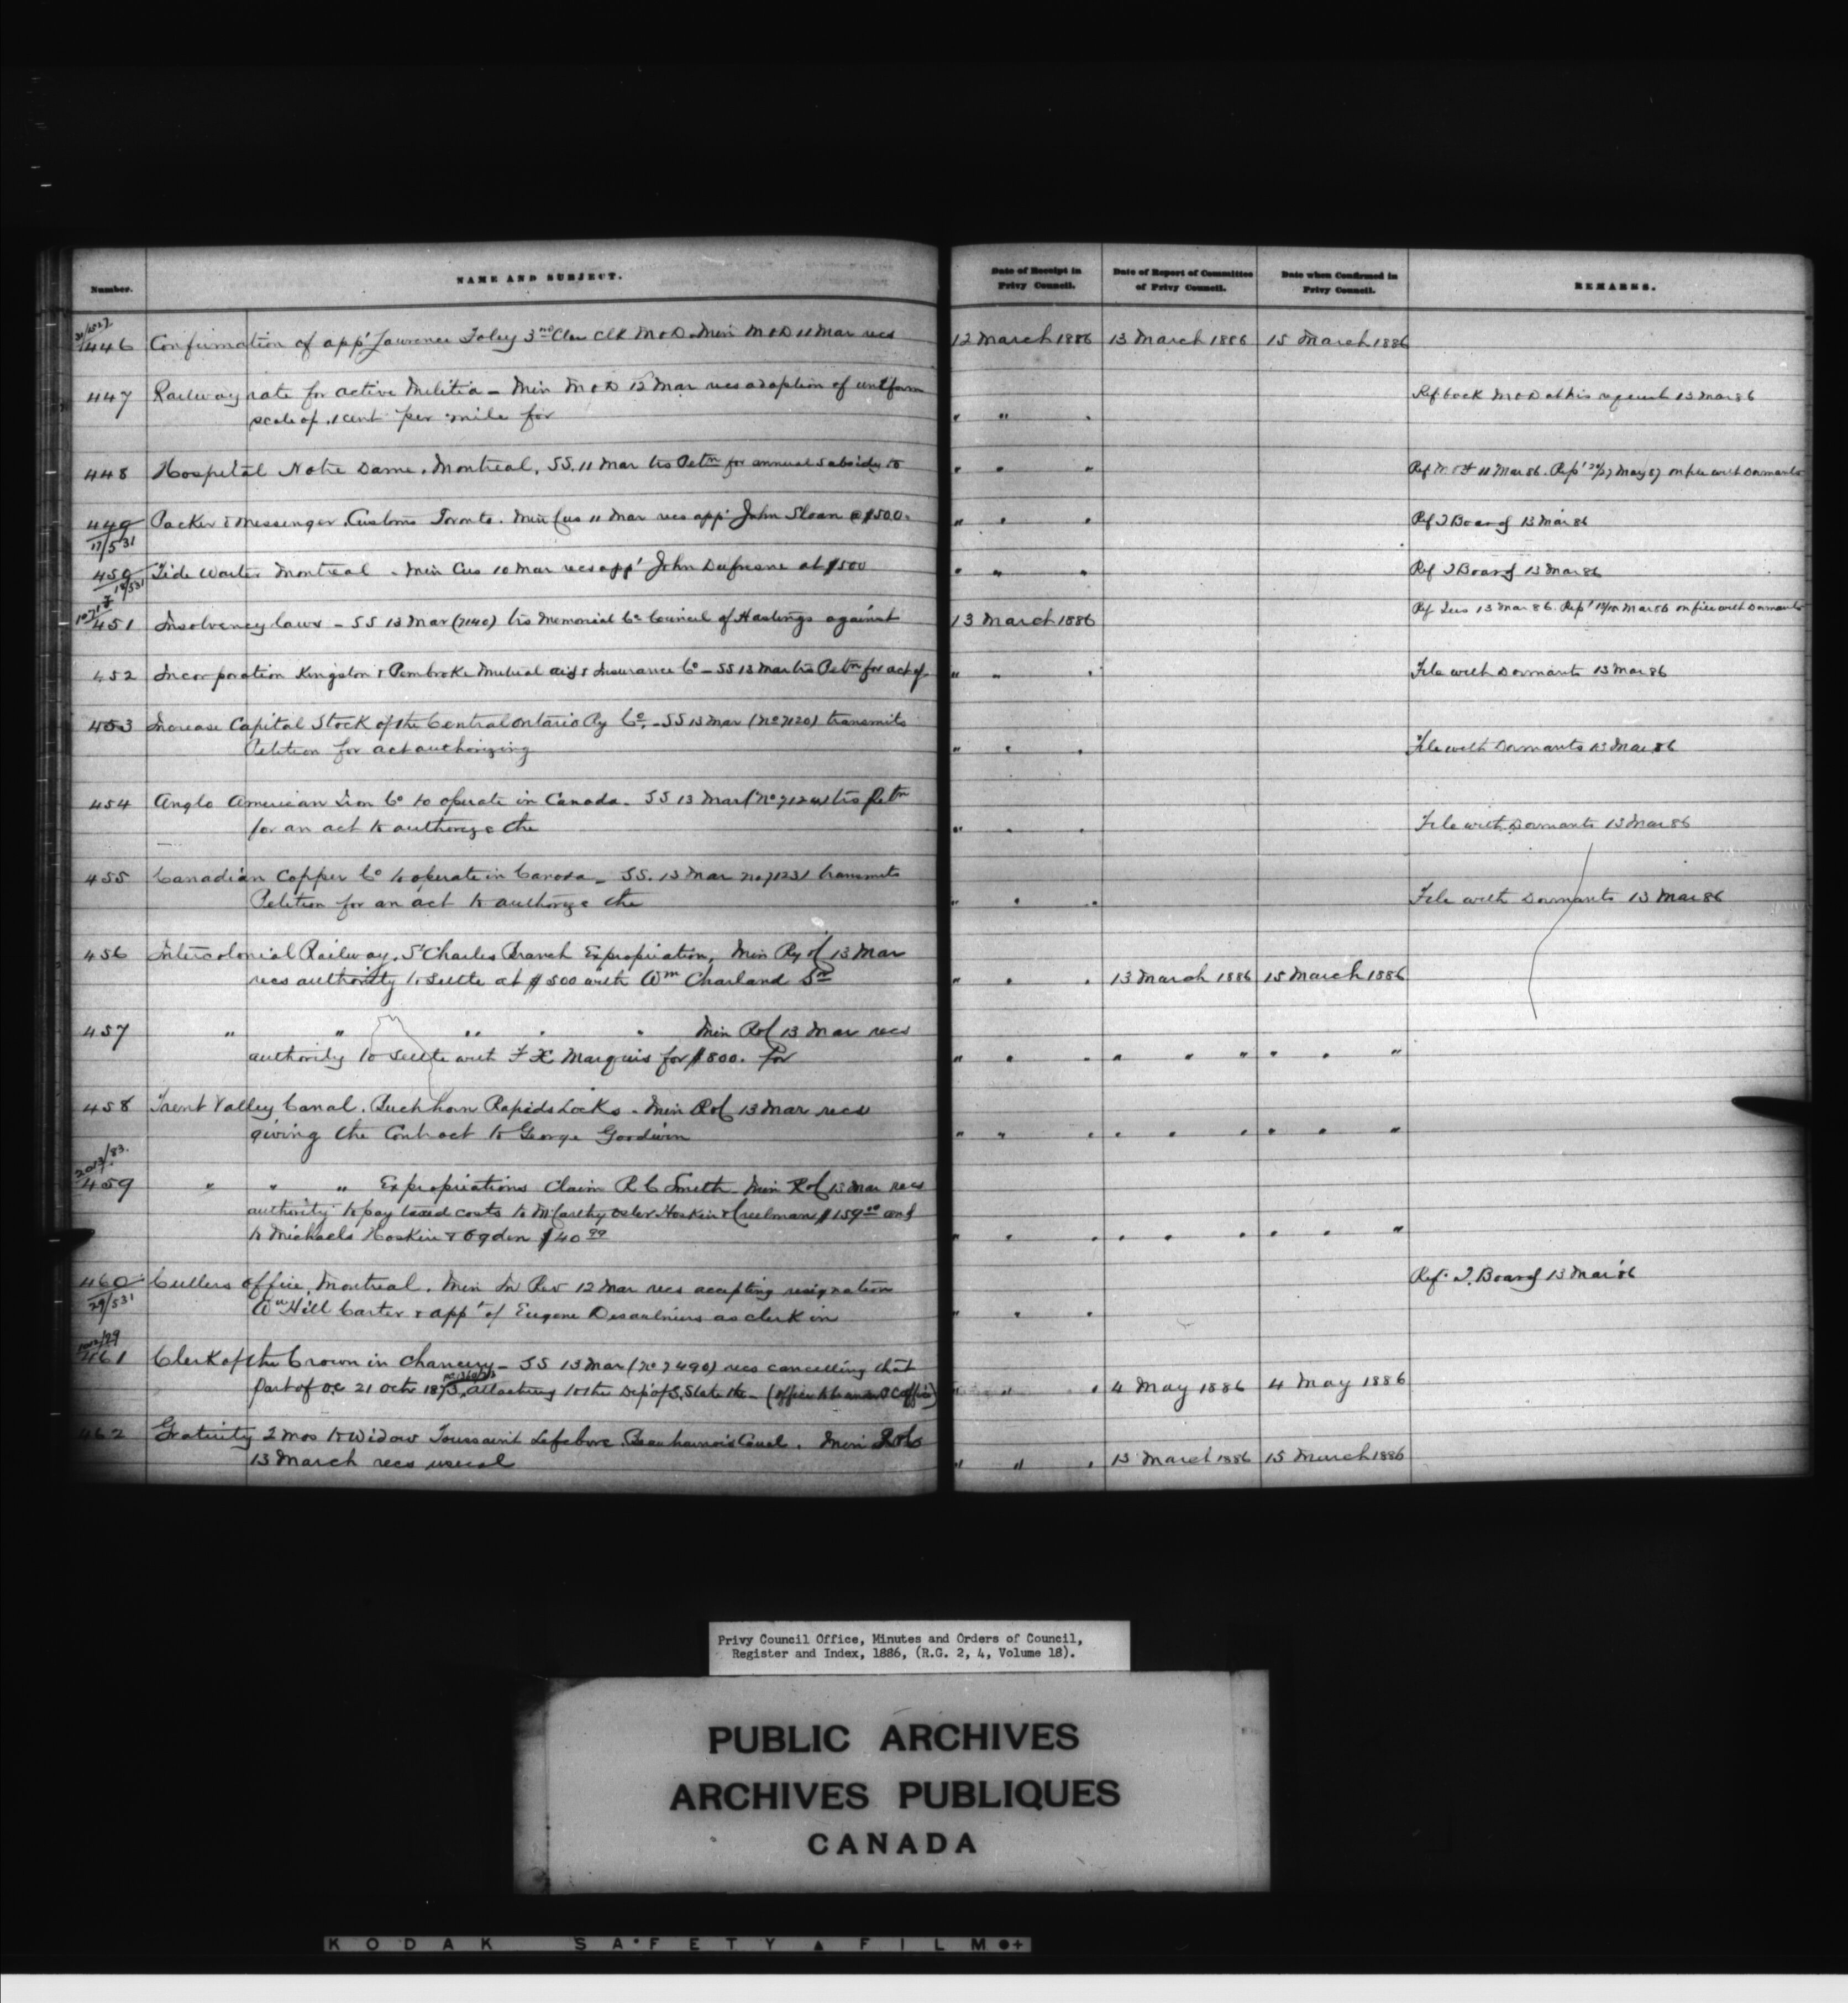 Number.
NAME AND SUBJECT.
Date of Receipt in Privy Council.
Date of Report of Committee of Privy Council.
Date when Confirmed in Privy Council.
REMARKS.
446 Confirmation of app't Lawrence Foley 3rd Class Clk M&D. Min M&D 11 Mar recs 12 March 1886 13 March 1886 15 March 1886
447 Railway rate for active Militia - Min M&D 12 Mar recs adoption of uniform Ref back M&D at his request 13 Mar 86
scale of 1 cent per mile for " " "
448 Hospital Notre Dame, Montreal, SS. 11 Mar trs Petn for annual subsidy to " " " Ref 11 Mar 86. Rep't May 87 on file with Dormants
449 Packer & Messenger, Customs Toronto. Min Cus 11 Mar recs app't John Sloan @ $500. " " " Ref T Board 13 Mar 86
17/531
450 Tide Waiter Montreal - Min Cus 10 Mar recs app't John Dufresne at $500 " " " Ref T Board 13 Mar 86
18/531
451 Insolvency laws - SS 13 Mar (7140) trs Memorial Co Council of Hastings against 13 March 1886 Ref Jus 13 Mar 86. Rep't Mar 86 on file with Dormants
452 Incorporation Kingston & Pembroke Mutual aid & Insurance Co - SS 13 Mar trs Petn for act of " " " File with Dormants 13 Mar 86
453 Increase Capital Stock of the Central Ontario Ry Co. - SS 13 Mar (No 7120) transmits
Petition for act authorizing " " " File with Dormants 13 Mar 86
454 Anglo American Iron Co to operate in Canada. SS 13 Mar (No 7124) trs Petn
for an act to authorize the " " " File with Dormants 13 Mar 86
455 Canadian Copper Co to operate in Canada - SS. 13 Mar No 7123 transmits
Petition for an act to authorize the " " " File with Dormants 13 Mar 86
456 Intercolonial Railway. St Charles Branch Expropriation, Min Ry of 13 Mar
recs authority to settle at $500 with Wm Charland Sr " " " 13 March 1886 15 March 1886
457 " " " " " Min R&C 13 Mar recs
authority to settle with F X Marquis for $800. for " " " " " " " " "
458 Trent Valley Canal. Buckhorn Rapids Locks - Min R&C 13 Mar recs
giving the Contract to George Goodwin " " " " " " " " "
2013/83.
459 " " " Expropriations Claim R C Smith - Min R&C 13 Mar recs
authority to pay taxed costs to McCarthy Osler Hoskin & Creelman $159.00 and
to Michaels Hoskin & Ogden $40.99 " " " " " " " " "
460 Cullers office, Montreal. Min In Rev 12 Mar recs accepting resignation Ref. T. Board 13 Mar '86
29/531 Wm Hill Carter & app't of Eugene Desaulniers as clerk in " " "
461 Clerk of the Crown in Chancery - SS 13 Mar (No 7490) recs cancelling that
part of OC 21 Octr 1873, attaching to the Dep of S. State the - " " " 4 May 1886 4 May 1886
462 Gratuity 2 mos to Widow Toussaint Lefebvre Beauharnois Canal. Min R&C
13 March recs usual " " " 13 March 1886 15 March 1886
Privy Council Office, Minutes and Orders of Council,
Register and Index, 1886, (R.G. 2, 4, Volume 18).
PUBLIC ARCHIVES
ARCHIVES PUBLIQUES
CANADA
KODAK SAFETY FILM